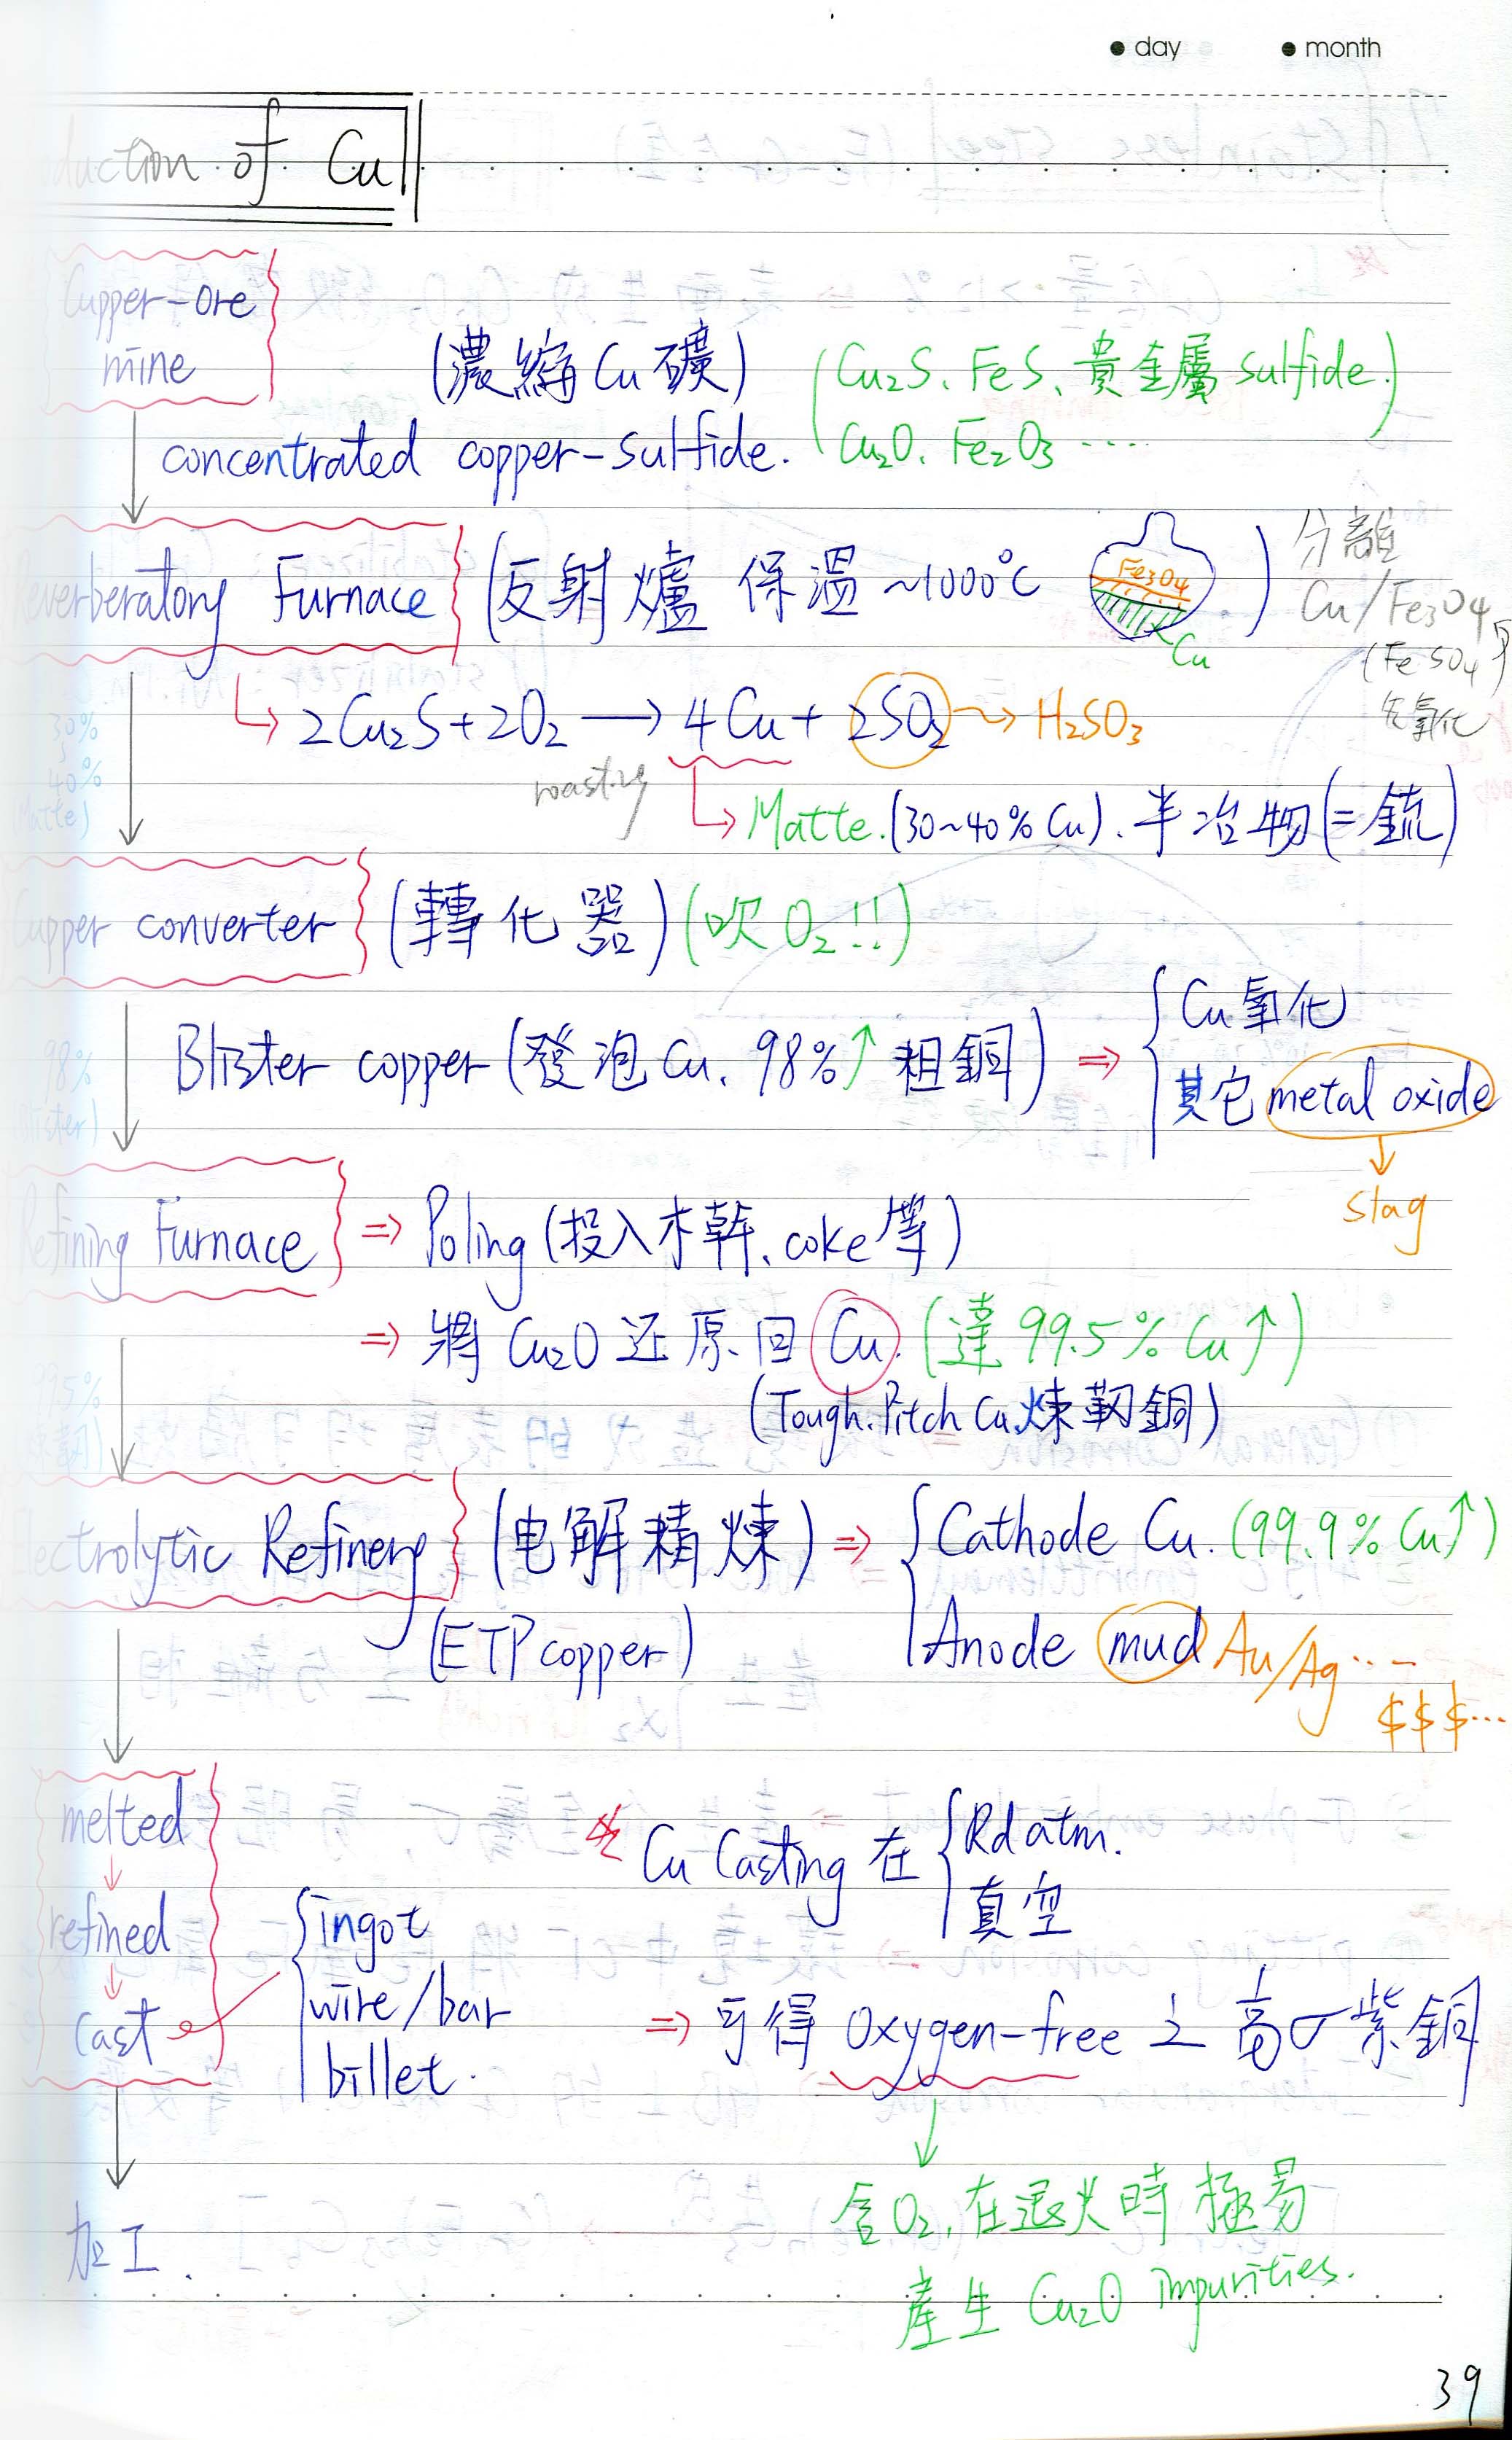 day month
duction of Cu
Cupper-ore
mine
(濃縮 Cu 礦) (Cu₂S、FeS、貴金屬 sulfide.)
concentrated copper-sulfide. Cu₂O. Fe₂O₃ ....
everberatory Furnace (反射爐 保溫 ~1000°C Fe₃O₄ Cu) 分離
Cu/Fe₃O₄
(FeSO₄
先氧化
↳ 2Cu₂S+2O₂ → 4Cu+2SO₂ ⇝ H₂SO₃
roasting
30%
40%
Matte)
↳ Matte.(30~40% Cu). 半冶物(=鋶)
Cupper converter (轉化器) (吹 O₂!!)
98%
Blister)
Blister copper (發泡 Cu. 98%↑ 粗銅) ⇒ Cu 氧化
其它 metal oxide
↓
slag
Refining Furnace ⇒ Poling (投入木幹、coke 等)
⇒ 將 Cu₂O 还原回 Cu. (達 99.5% Cu↑)
(Tough.Pitch Cu 煉韌銅)
99.5%
lectrolytic Refinery (电解精煉) ⇒ Cathode Cu. (99.9% Cu↑)
(ETP copper) Anode mud Au/Ag ...
$$$...
melted
↓
refined
↓
cast
ingot
wire/bar
billet.
Cu Casting 在 Rd atm.
真空
⇒ 可得 Oxygen-free 之高σ紫銅
↓
含O₂, 在退火時極易
產生 Cu₂O impurities.
加工.
39